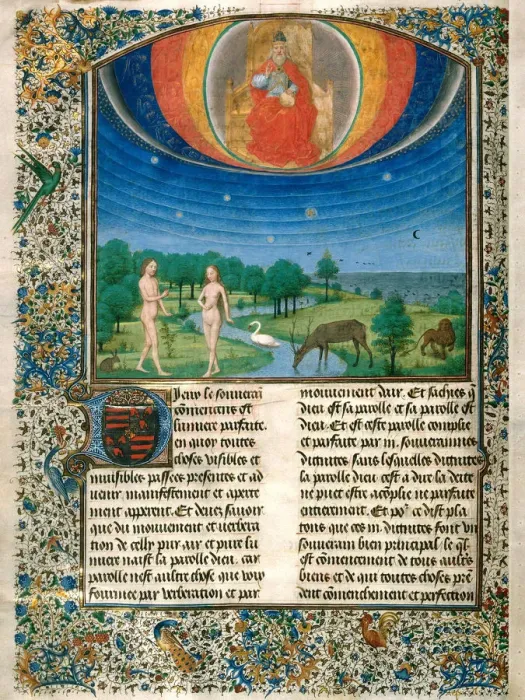 Dieu le souverain
comencemẽs est
lumiere parfaite.
en quoy toutes
choses visibles et
invisibles passees presentes et ad
venir manifestement et aperte
ment apperent. Et devez savoir
que du mouvement et verbera
tion de celly pur air et pure lu
miere naist la parolle dieu. car
parolle nest aultre chose que voix
fourmee par verberation et par
mouvement dair. Et sachies q̃
dieu est sa parolle et sa parolle est
dieu. Et est ceste parolle complie
et parfaite par .iij. souveraines
dignites sans lesquelles dignites
la parolle dieu cest a dire la deite
ne puet estre acõplie ne parfaite
entierement. Et po² ce dist pla
tons que ces .iij. dignites sont vn
souverain bien principal le q̃l
est comencement de tous aultres
biens et de qui toutes choses pre
dent comenchement et perfection